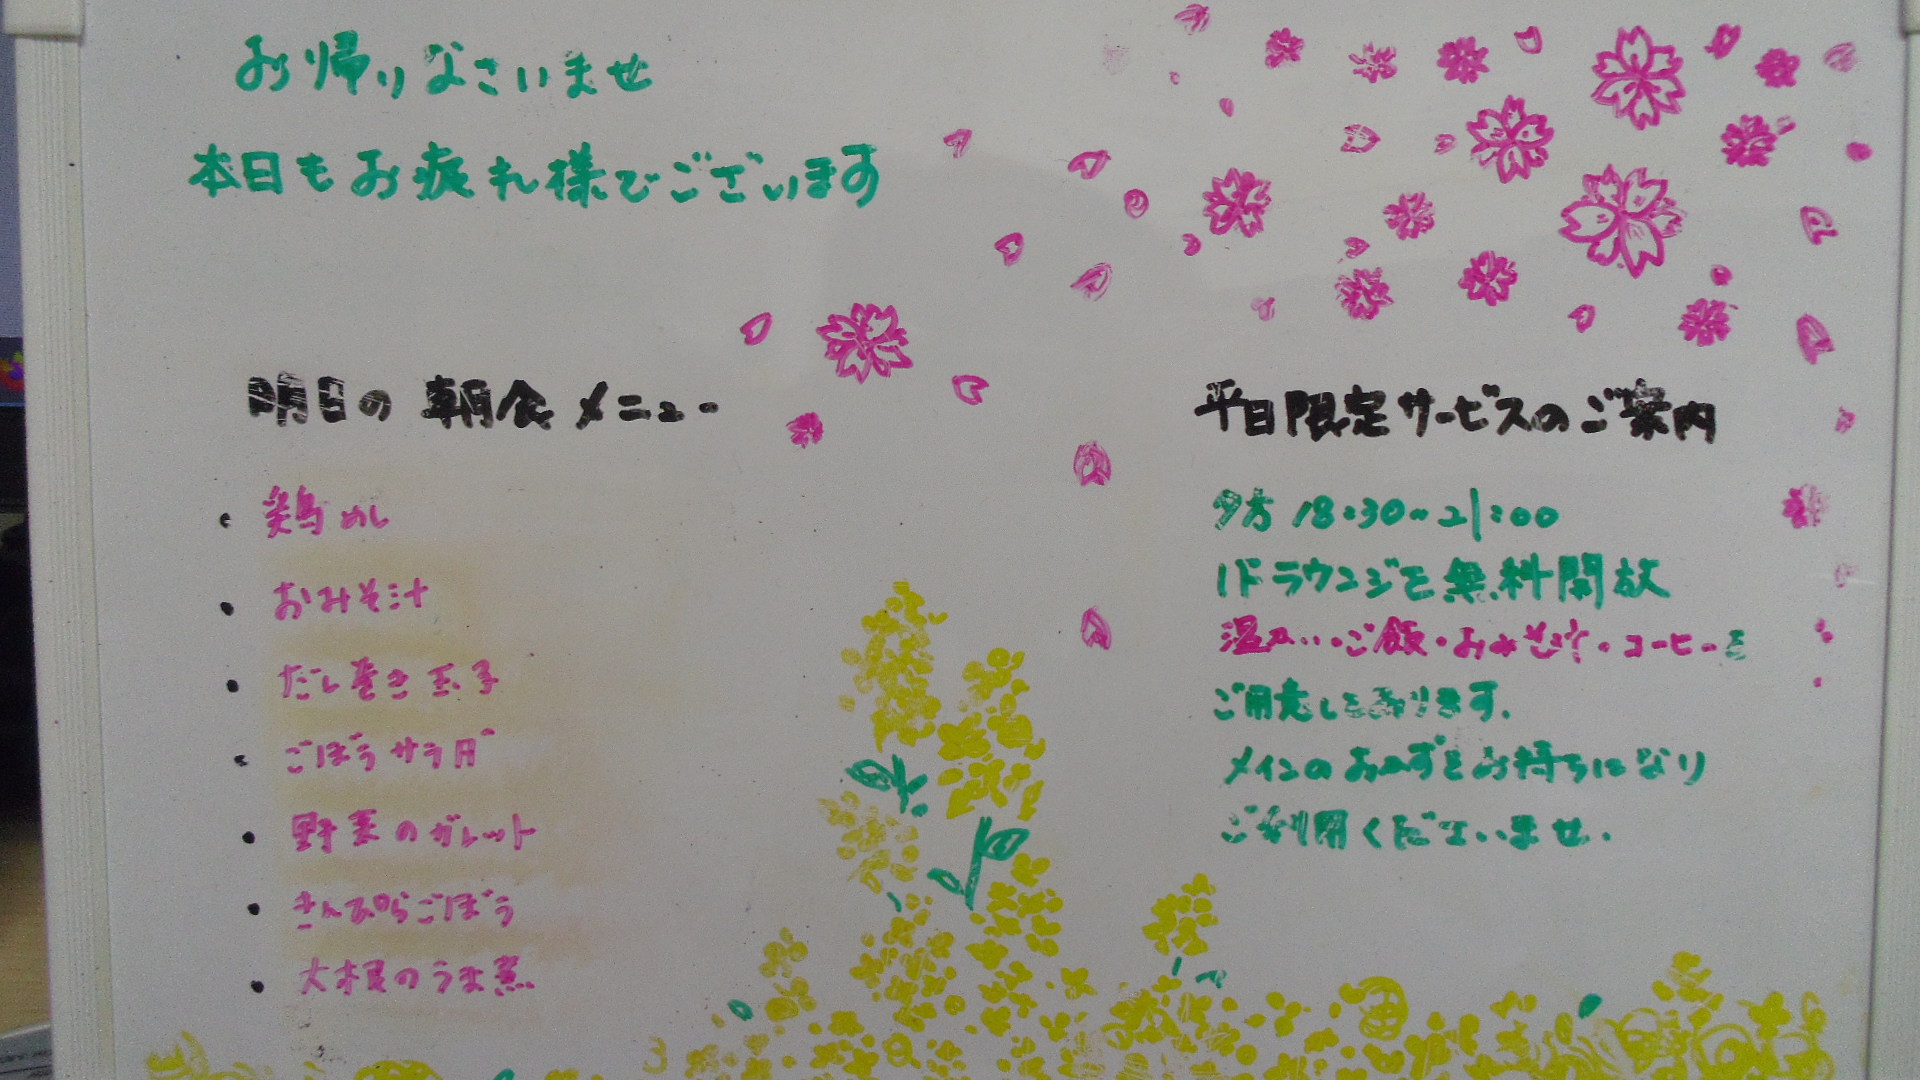 お帰りなさいませ
本日もお疲れ様でございます
明日の朝食メニュー
・鶏めし
・おみそ汁
・だし巻き玉子
・ごぼうサラダ
・野菜のガレット
・きんぴらごぼう
・大根のうま煮
平日限定サービスのご案内
夕方 18:30~21:00
1Fラウンジを無料開放
温かい・ご飯・おみそ汁・コーヒーを
ご用意しております。
メインのおかずをお持ちになり
ご利用くださいませ.